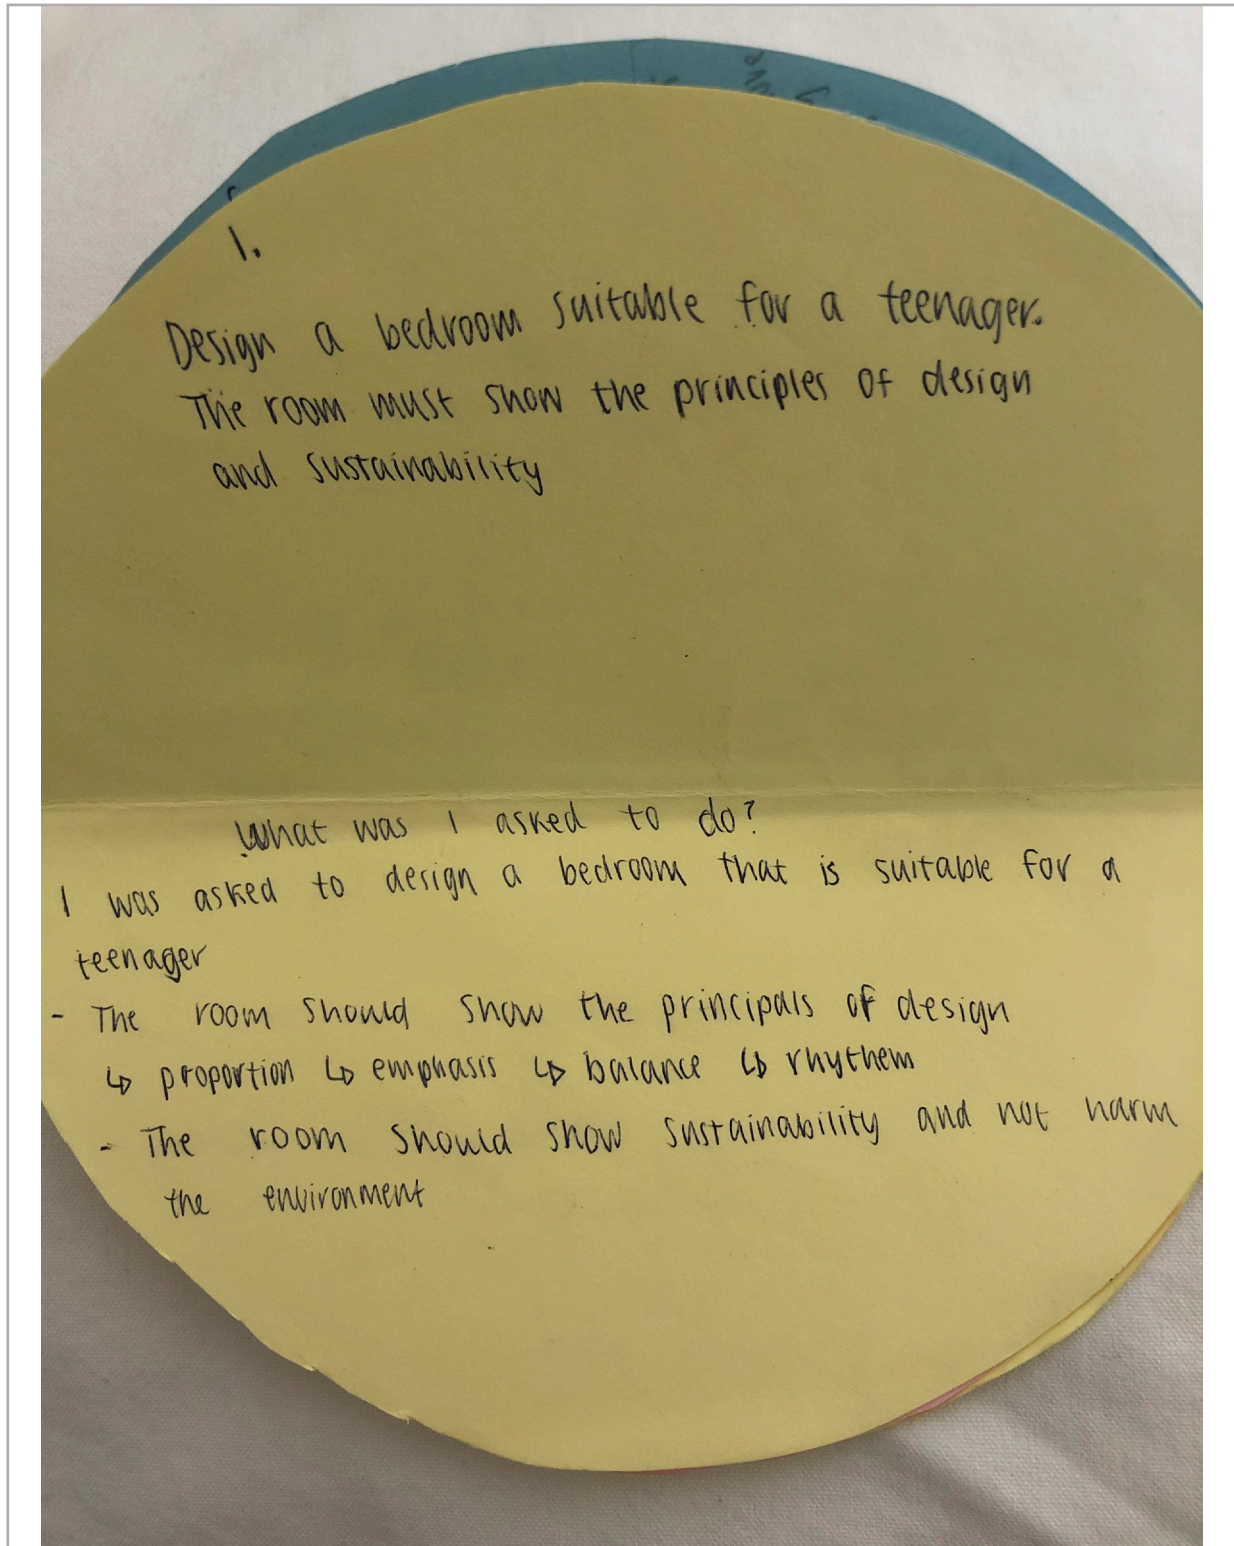 1.
Design a bedroom suitable for a teenager.
The room must show the principles of design
and sustainability
What was I asked to do?
I was asked to design a bedroom that is suitable for a
teenager
- The room should show the principals of design
↳ proportion ↳ emphasis ↳ balance ↳ rhythem
- The room should show sustainability and not harm
the environment